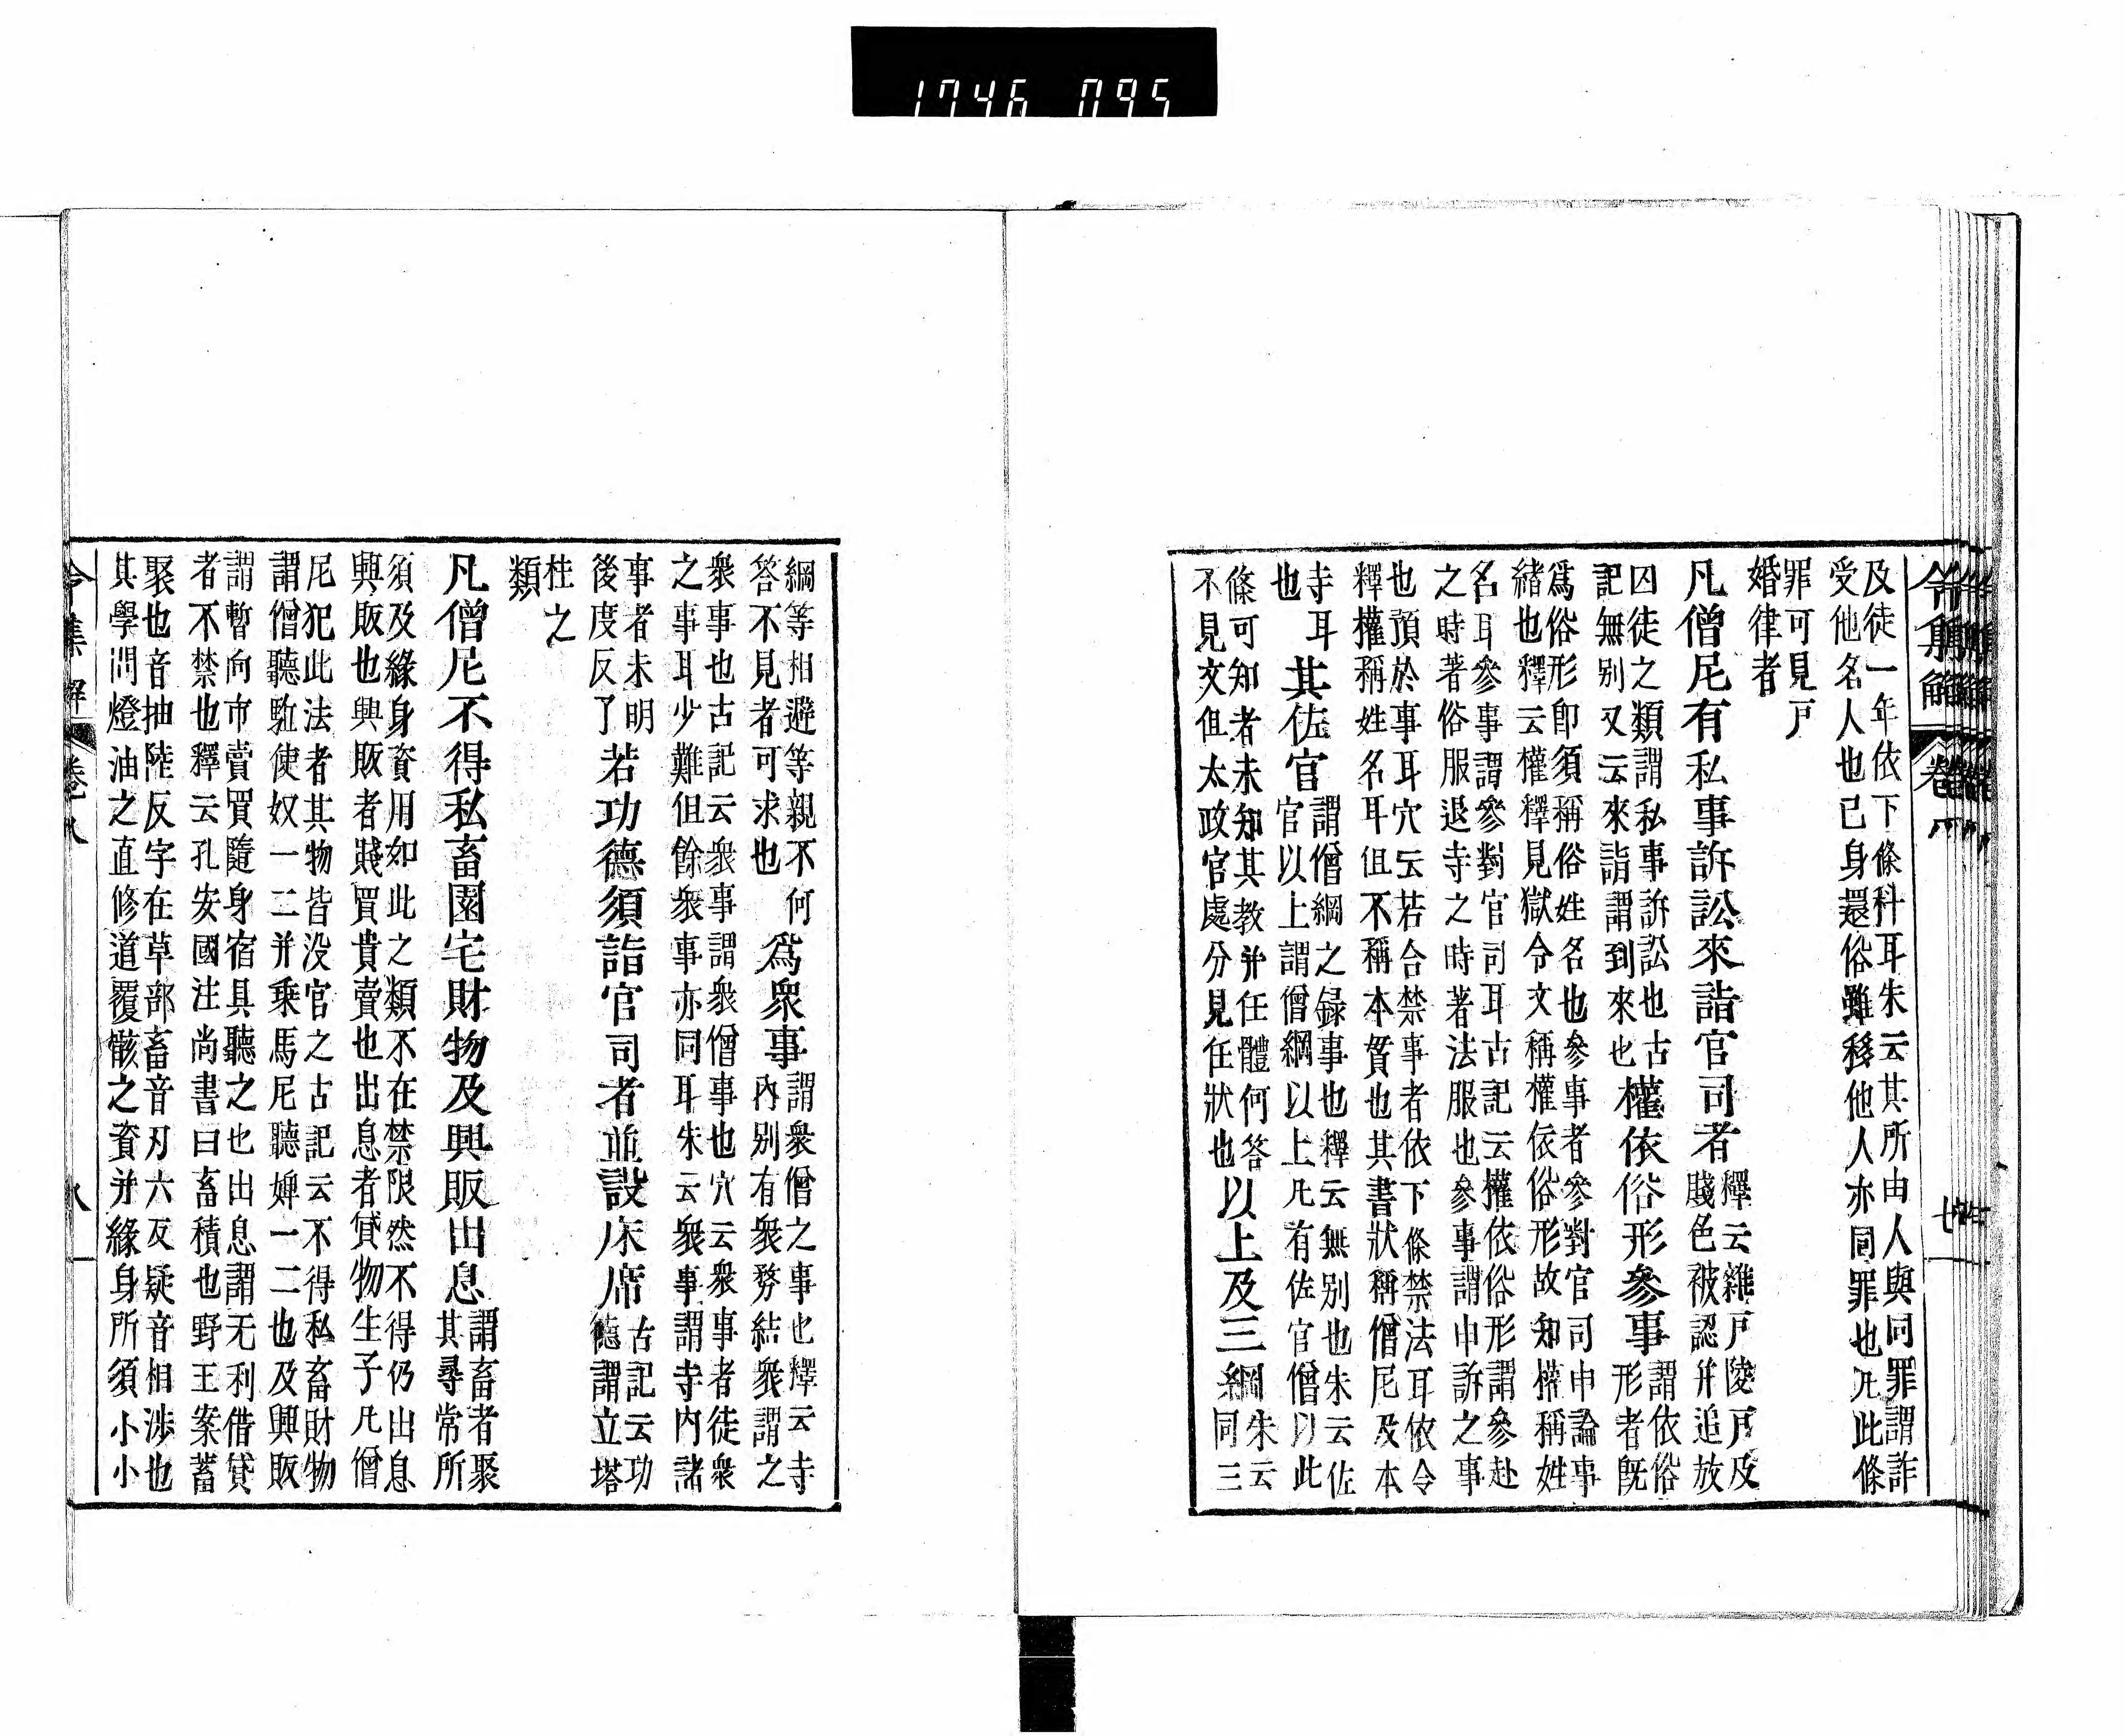 1746 095
令集解 卷 七
及徒一年依下條科耳朱云其所由人與同罪謂詐
受他名人也已身還俗雖移他人亦同罪也凡此條
罪可見戸
婚律者
凡僧尼有私事訴訟來詣官司者
釋云雜戸陵戸及
賤色被認并追放
囚徒之類謂私事訴訟也古
記無別又云來詣謂到來也
權依俗形參事
謂依俗
形者既
爲俗形即須稱俗姓名也參事者參對官司申論事
緒也釋云權釋見獄令文稱權依俗形故知權稱姓
名耳參事謂參對官司耳古記云權依俗形謂參赴
之時著俗服退寺之時著法服也參事謂申訴之事
也預於事耳穴云若合禁事者依下條禁法耳依令
釋權稱姓名耳但不稱本貫也其書狀稱僧尼及本
寺耳
也
其佐官
謂僧綱之録事也釋云無別也朱云佐
官以上謂僧綱以上凡有佐官僧以此
條可知者未知其教并任體何答
不見文但太政官處分見任狀也
以上及三綱
朱云
同三
綱等相避等親不何
答不見者可求也
爲衆事
謂衆僧之事也釋云寺
内別有衆務結衆謂之
衆事也古記云衆事謂衆僧事也穴云衆事者徒衆
之事耳少難但餘衆事亦同耳朱云衆事謂寺内諸
事者未明
後度反了
若功德須詣官司者並設床席
古記云功
德謂立塔
桂之
類
凡僧尼不得私畜園宅財物及興販出息
謂畜者聚
其尋常所
須及緣身資用如此之類不在禁限然不得仍出息
興販也興販者賤買貴賣也出息者貸物生子凡僧
尼犯此法者其物皆没官之古記云不得私畜財物
謂僧聽駈使奴一二并乘馬尼聽婢一二也及興販
謂暫向市賣買隨身宿具聽之也出息謂无利借貸
者不禁也釋云孔安國注尚書曰畜積也野王案蓄
聚也音抽陸反字在草部畜音刃六反疑音相渉也
其學問燈油之直修道覆骸之資并緣身所須小小
令集解 卷八 八